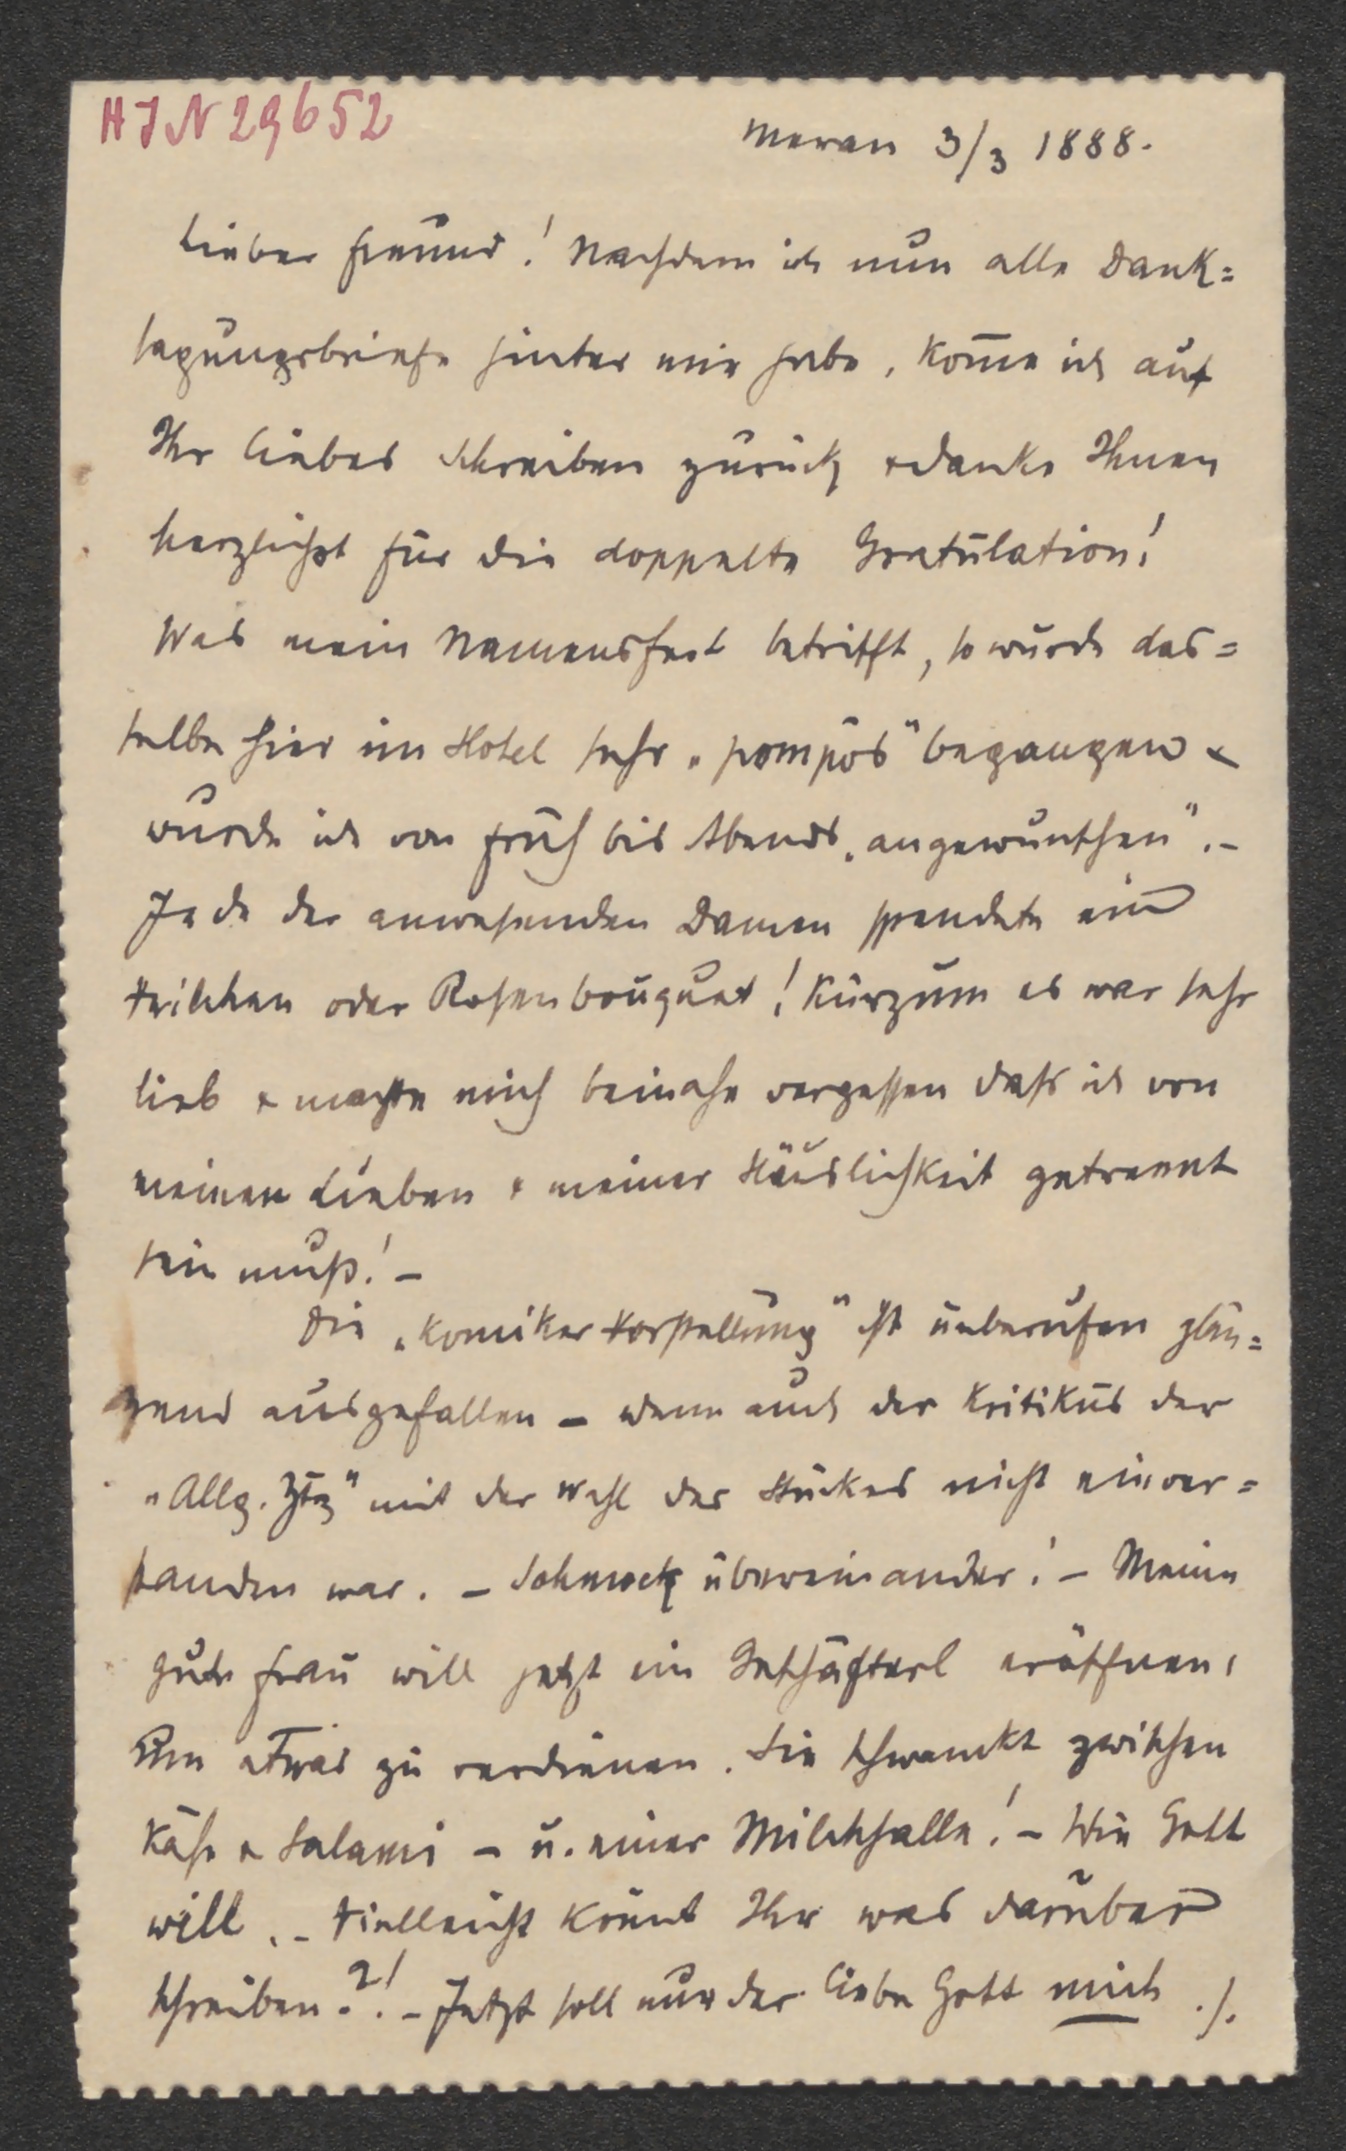 HJN 29652
Meran 3/3 1888.
Lieber Freund! Nachdem ich nun alle Dank=
sagungsbriefe hinter mir habe, kom̄e ich auf
Ihr liebes Schreiben zurück & danke Ihnen
herzlichst für die doppelte Gratulation!
Was mein Namensfest betrifft, so wurde das=
selbe hier im Hotel sehr „pompös" begangen &
wurde ich von früh bis Abends „angewunschen". –
Jede der anwesenden Damen spendete ein
Veilchen oder Rosenbouquet! Kurzum es war sehr
lieb & machte mich beinahe vergessen dass ich von
meinen Lieben & meiner Häuslichkeit getrennt
sein muß! –
Die „Komiker Vorstellung" ist unberufen glän=
zend ausgefallen – wenn auch der Kritikus der
„Allg. Ztg" mit der Wahl des Stückes nicht einver=
standen war. – Schmock übereinander! – Meine
gute Frau will jetzt ein Geschäfterl eröffnen,
um etwas zu verdienen. Sie schwankt zwischen
Käse & Salami – u. einer Milchhalle! – Wie Gott
will. – Vielleicht könnt Ihr was darüber
schreiben?! – Jetzt soll nur der liebe Gott mich ./.